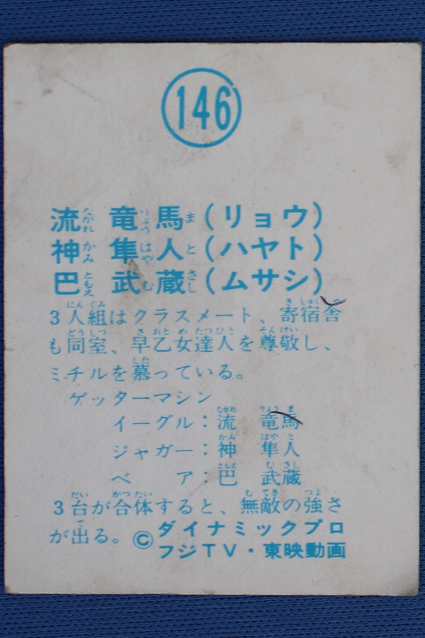 146
流竜馬(リョウ)
神隼人(ハヤト)
巴武蔵(ムサシ)
3人組はクラスメート、寄宿舎
も同室、早乙女達人を尊敬し、
ミチルを慕っている。
ゲッターマシン
イーグル:流竜馬
ジャガー:神隼人
ベア:巴武蔵
3台が合体すると、無敵の強さ
が出る。
©ダイナミックプロ
フジTV・東映動画